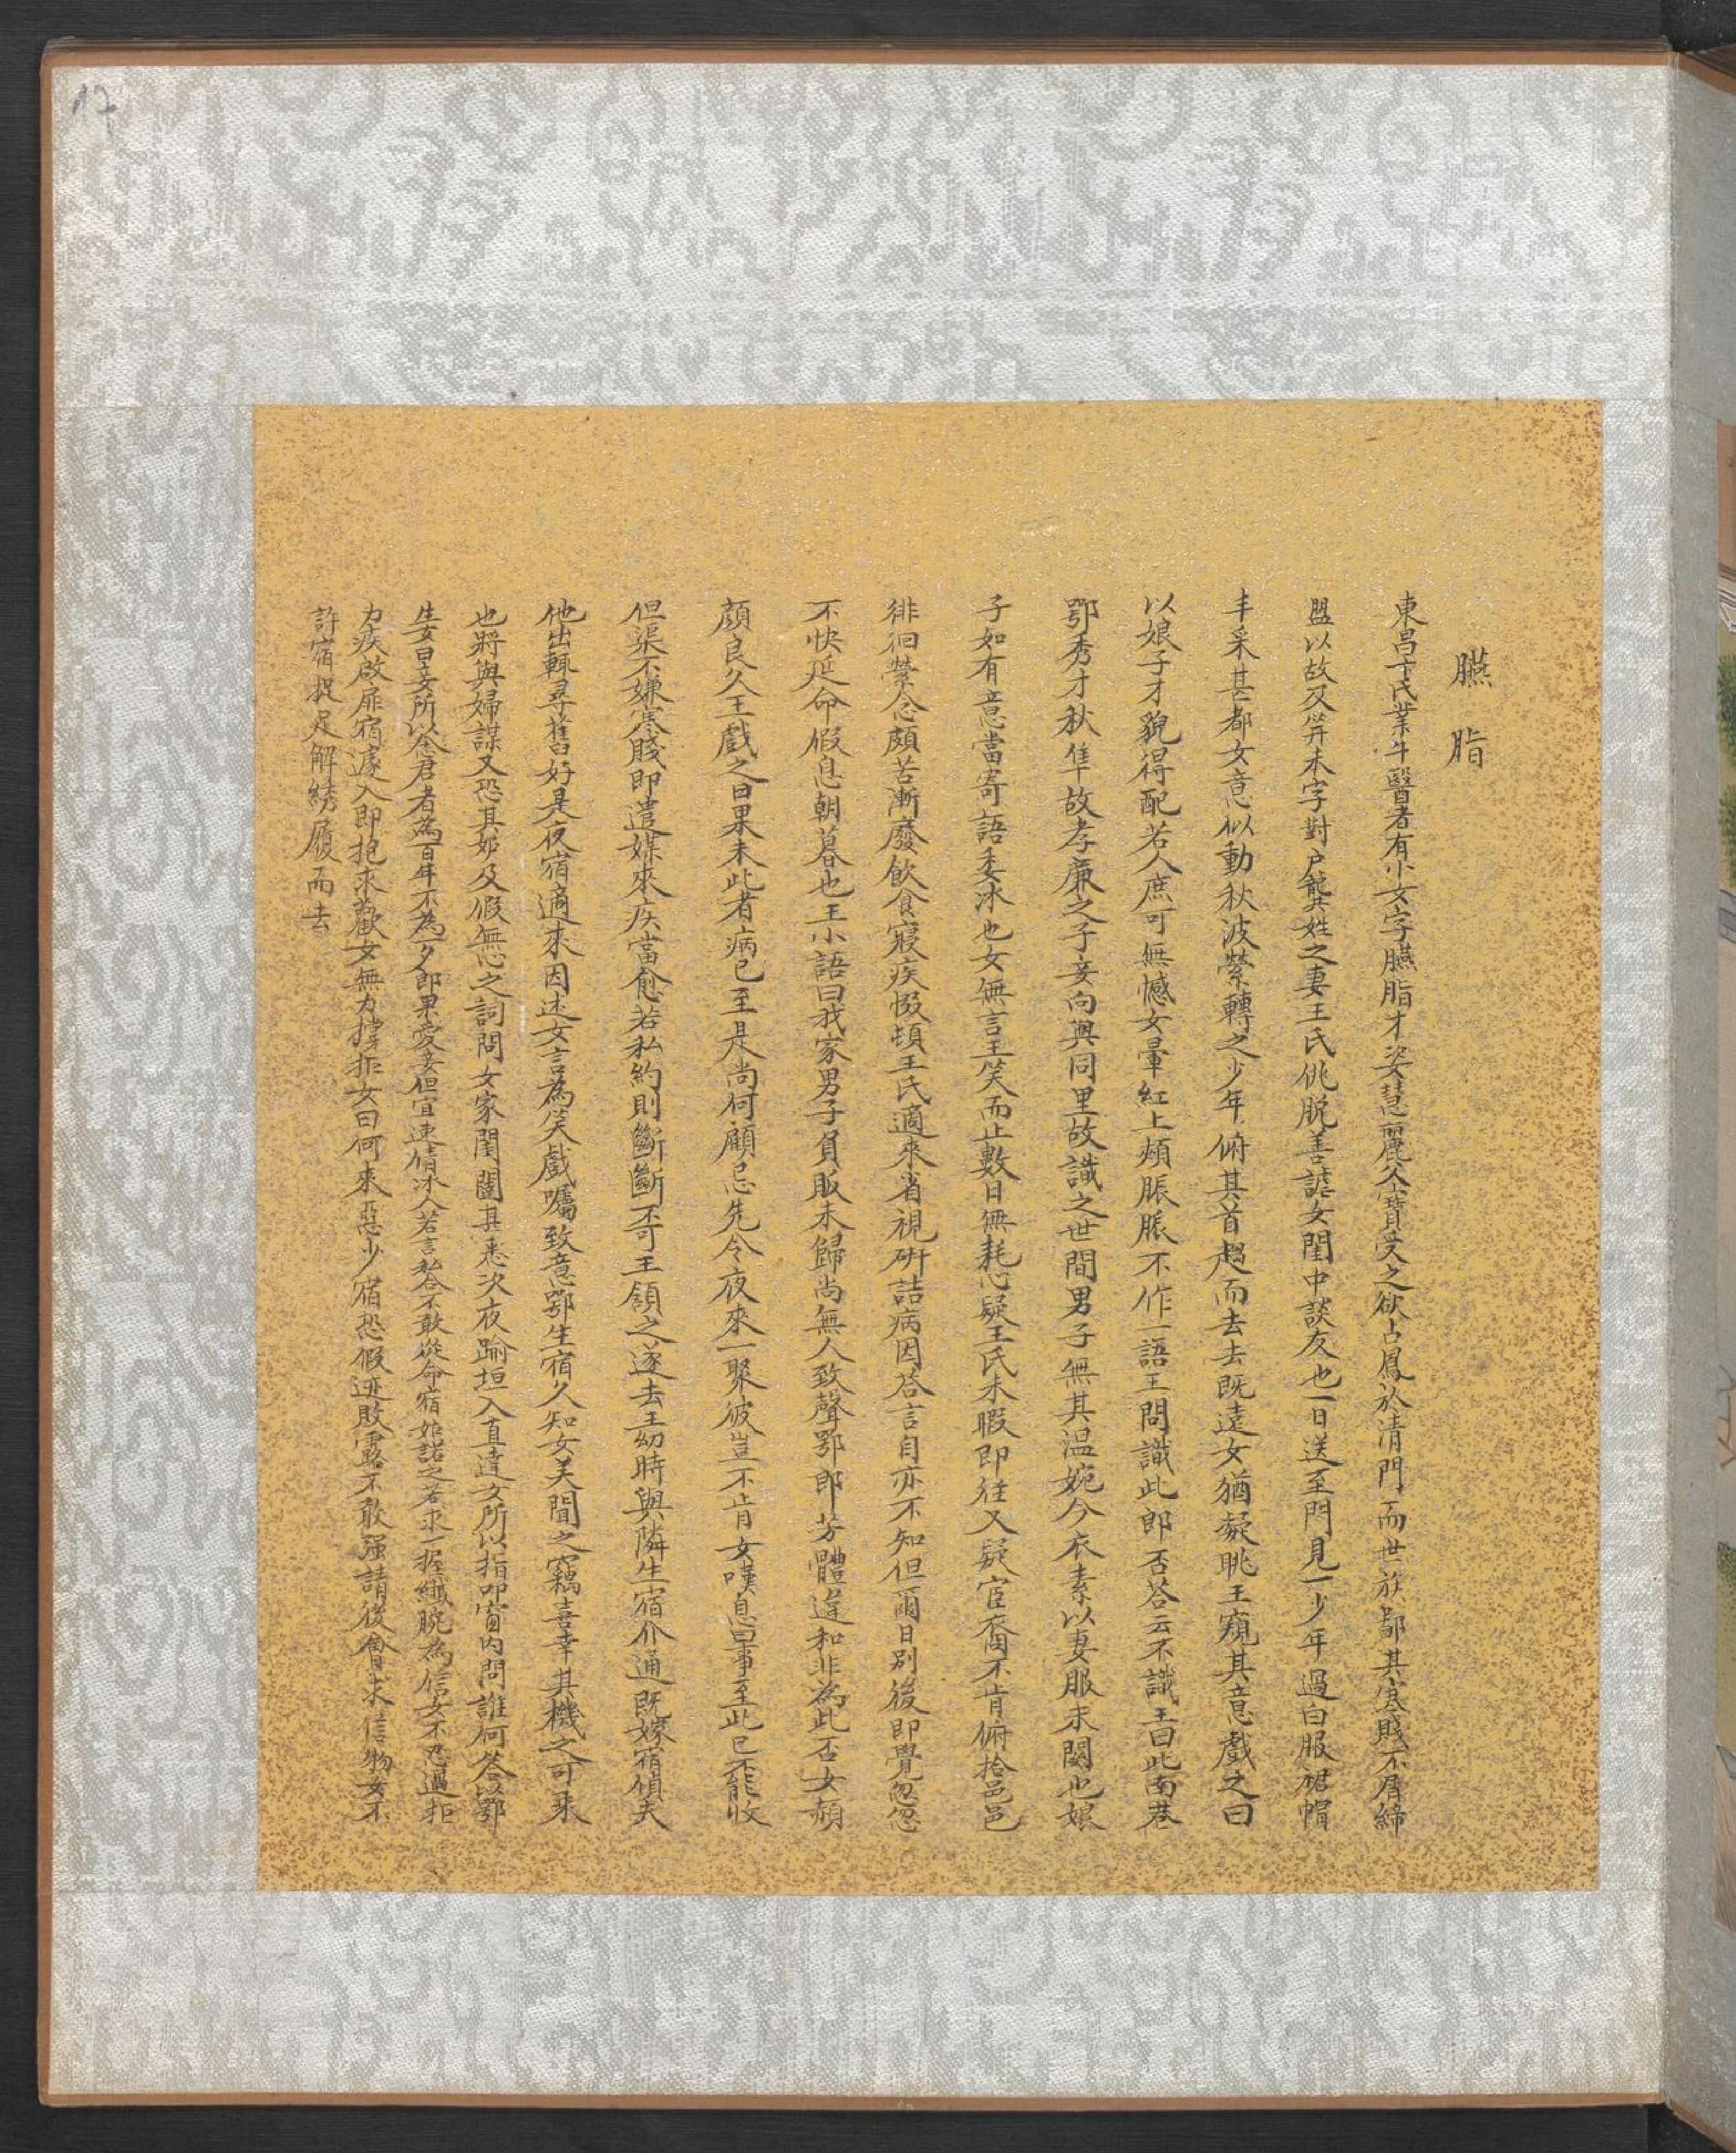 17
臙脂
東昌卞氏業牛醫者有小女字臙脂才姿慧麗父寶愛之欲占鳳於清門而世族鄙其寒賤不屑締
盟以故及笄未字對戶龔姓之妻王氏佻脫善謔女閨中談友也一日送至門見一少年過白服裙帽
丰采甚都女意似動秋波縈轉之少年俯其首趨而去去既遠女猶凝眺王窺其意戲之曰
以娘子才貌得配若人庶可無憾女暈紅上頰脈脈不作一語王問識此郎否答云不識王曰此南巷
鄂秀才秋隼故孝廉之子妾向與同里故識之世間男子無其溫婉今衣素以妻服未闋也娘
子如有意當寄語委冰也女無言王笑而止數日無耗心疑王氏未暇即往又疑宦裔不肯俯拾邑邑
徘徊縈念頗苦漸廢飲食寢疾惙頓王氏適來省視研詰病因答言自亦不知但爾日別後即覺忽忽
不快延命假息朝暮也王小語曰我家男子負販未歸尚無人致聲鄂郎芳體違和非為此否女赬
顏良久王戲之曰果未此者病已至是尚何顧忌先令夜來一聚彼豈不肯女嘆息曰事至此已不能收
但渠不嫌寒賤即遣媒來疾當愈若私約則斷斷不可王頷之遂去王幼時與隣生宿介通既嫁宿偵夫
他出輒尋舊好是夜宿適來因述女言為笑戲囑致意鄂生宿久知女美聞之竊喜幸其機之可乘
也將與婦謀又恐其妒乃假無心之詞問女家閨闥甚悉次夜踰垣入直達女所以指叩窗內問誰何答以鄂
生女曰妾所以念君者為百年不為一夕郎果愛妾但宜速倩冰人若言私合不敢從命宿姑諾之若求一握纖腕為信女不忍過拒
力疾啟扉宿遽入即抱求歡女無力撐拒女曰何來惡少宿恐假迹敗露不敢強請後會求信物女不
許宿捉足解繡履而去